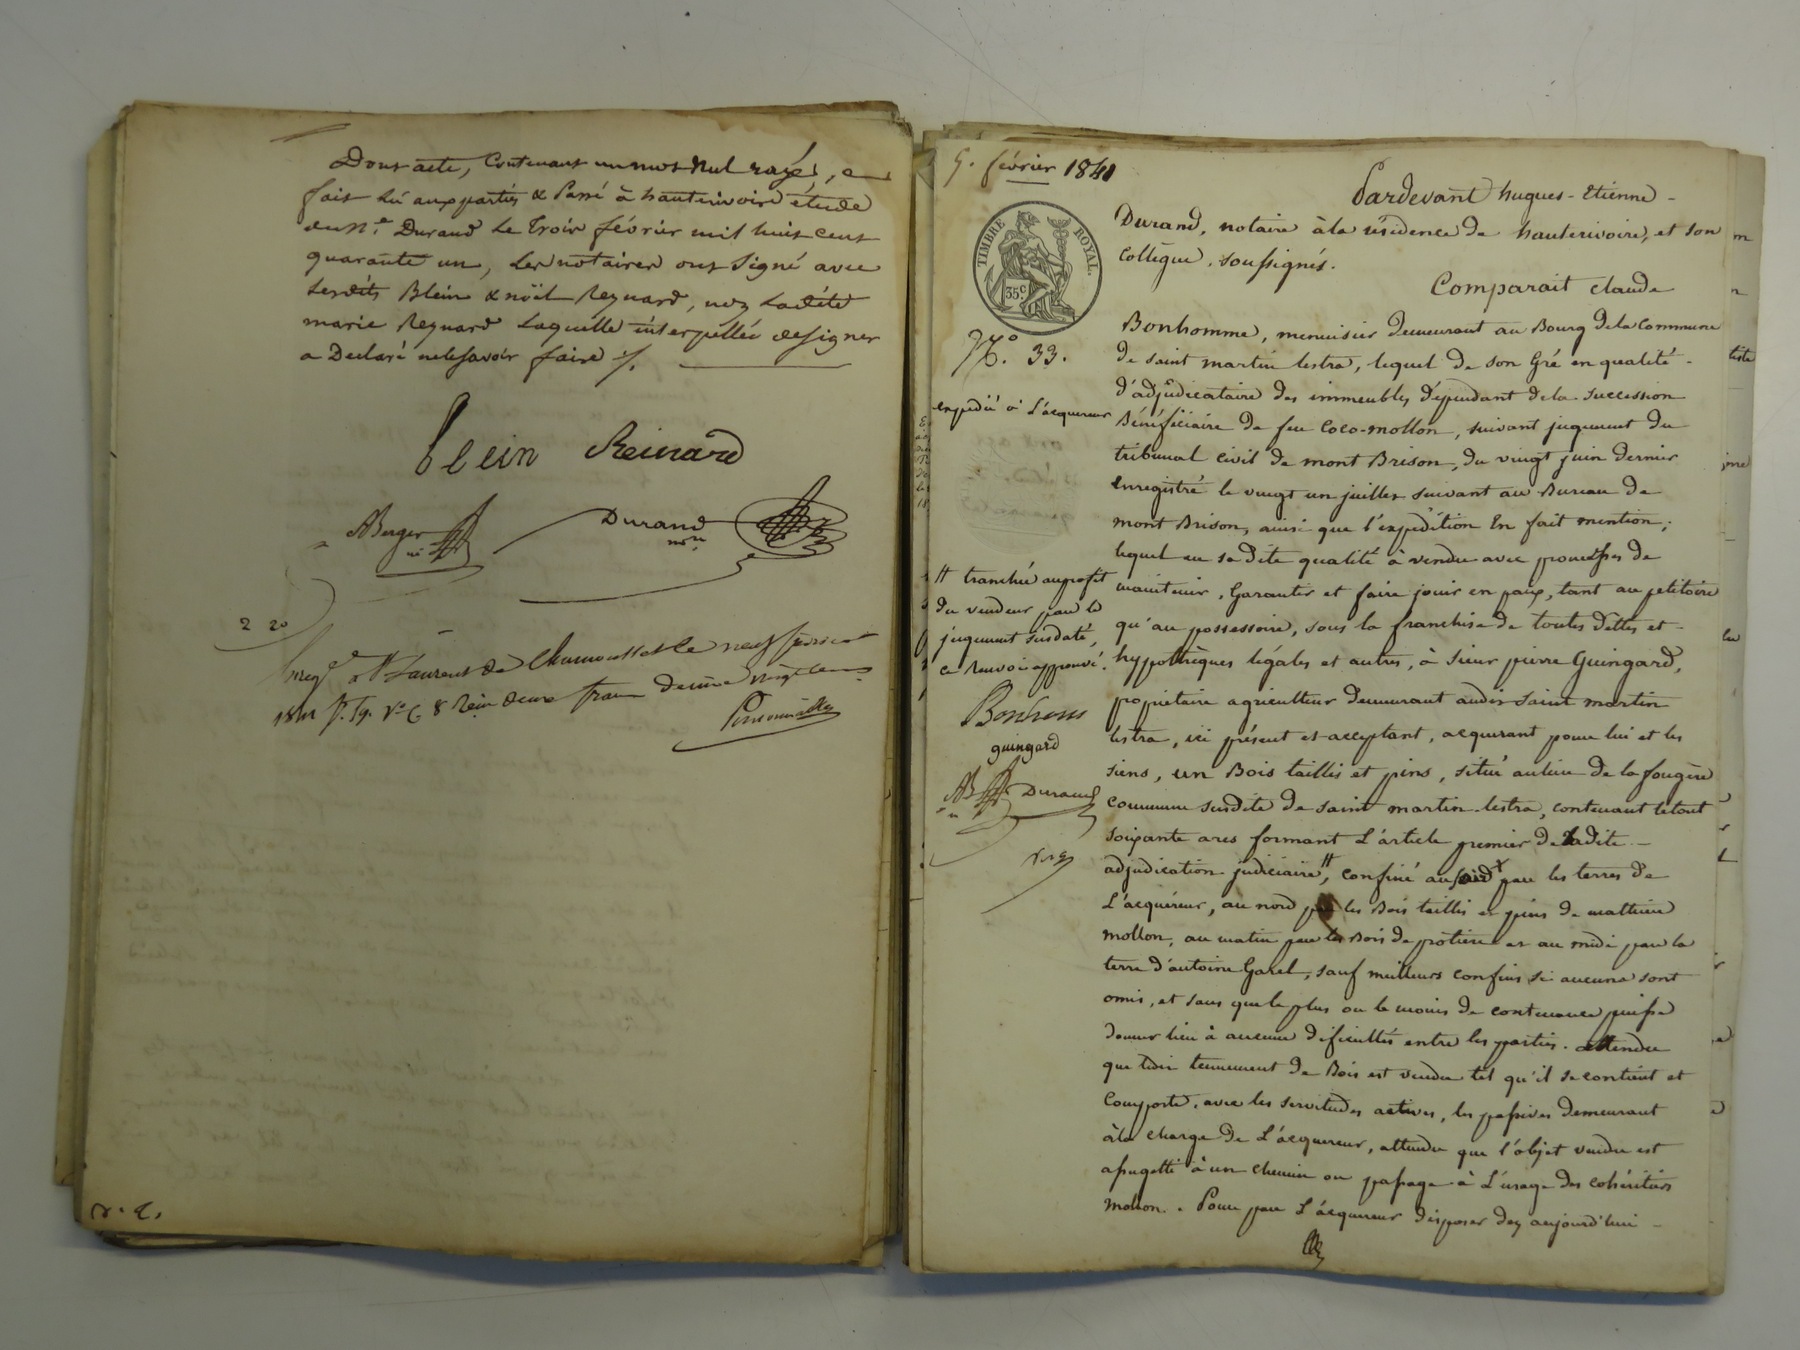 Dont acte, Contenant un mot Nul rayé, 
fait lu aux parties & Passé à hauterivoire étude
du N.e Durand Le Trois février mil huit cent
quarante un, Les notaires ont signé avec
lesdits Blein & noël Reynard, non ladite
marie Reynard laquelle interpellée de signer
a Declaré ne le savoir faire ./.
blein Reinard
ABerger Durand
nre
2 20
Enregé à St Laurent de Chamousset le neuf février
1841 fo. 59. Vo C 8 Reçu deux francs dixième vingt cens.
v. Q.
5. février 1841
TIMBRE ROYAL.
35c
No. 33.
expédié à L'acquereur
Pardevant hugues-Etienne -
Durand, notaire à la résidence de hauterivoire, et son
Collègue, soussignés.
Comparait claude
Bonhomme, menuisier demeurant au Bourg de la Commune
de saint martin lestra, lequel de son Gré en qualité -
d'adjudicataire des immeubles dépendant de la succession
Bénéficiaire de feu Coco-mollon, suivant jugement du
tribunal civil de mont Brison, du vingt juin dernier
enregistré le vingt un juillet suivant au Bureau de
mont Brison, ainsi que l'expédition En fait mention;
lequel en sa dite qualité à vendu avec promesses de
maintenir, Garantir et faire jouir en paix, tant au petitoire
qu'au possessoire, sous la franchise de toutes dettes et -
hypothèques légales et autres, à sieur pierre Guingard,
propriétaire agriculteur demeurant audit saint martin
lestra, ici présent et acceptant, acquérant pour lui et les
siens, un Bois taillis et pins, situé au lieu de la fougère
commune susdite de saint martin lestra, contenant le tout
soixante ares formant L'article premier de Ladite -
adjudication judiciaire #, confiné au soir par les terres de
L'acquéreur, au nord par les Bois taillis et pins de mathieu
mollon, au matin par les Bois de protière et au midi par la
terre d'antoine Garel, sauf meilleurs confins si aucuns sont
omis, et sans que le plus ou le moins de contenance puisse
donner lieu à aucune dificultés entre les parties. attendu
que ledit tennement de Bois est vendu tel qu'il se contient et
Comporte, avec les servitudes actives, les passives demeurant
à la charge de L'acquereur, attendu que l'objet vendu est
assugetti à un chemin ou passage à L'usage des cohéritiers
mollon. . Pour par L'acquereur disposer dez aujourd'hui -
# tranchée au profit
du vendeur par le
jugement susdaté,
ce Renvoi approuvé.
Bonhom
guingard
AB Durand